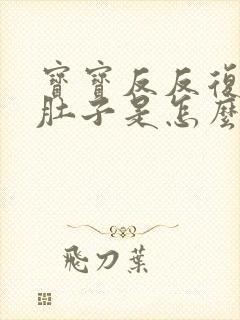 寶寶反反復
肚子是怎麼
飛刀葉